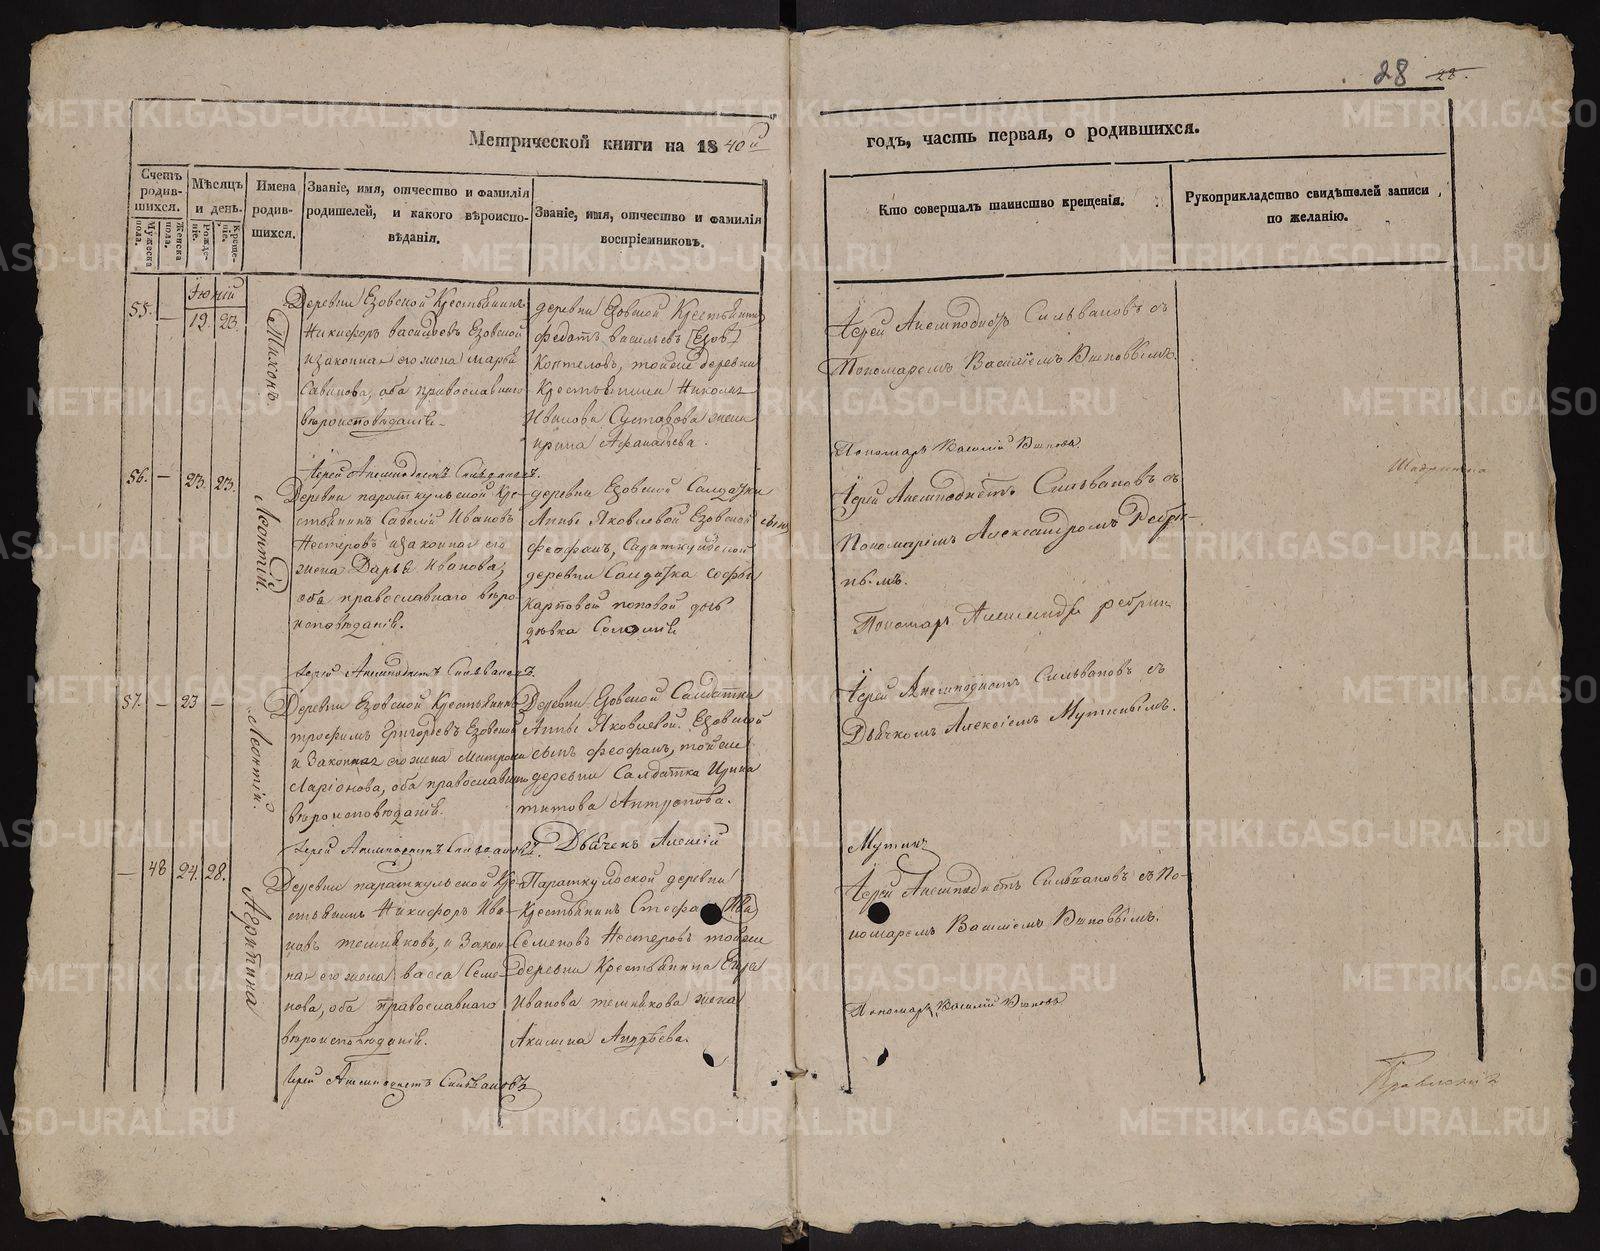 28 28.
Метрической книги на 1840й
годъ, часть первая, о родившихся.
Счетъ родив-шихся.
Мужеска пола.
Женска пола.
Мѣсяцъ и день.
Рожде-ніе.
Креще-ніе.
Имена родив-шихся.
Званіе, имя, отчество и фамилія родителей, и какого вѣроиспо-вѣданія.
Званіе, имя, отчество и фамилія воспріемниковъ.
Кто совершалъ таинство крещенія.
Рукоприкладство свидѣтелей записи по желанію.
Іюній
55. — 12. 23.
Тихонъ
Деревни Езовской Крестьянинъ
Никифоръ Васильевъ Езовской
и законная его жена Марья
Савинова, оба православнаго
вѣроисповѣданія.
деревни Езовской Крестьянинъ
Федотъ Васильевъ
тойже деревни
Крестьянина
жена
Ирина Афанасьева.
Іерей Анемподистъ Сильвановъ съ
Пономаремъ Василіемъ
Пономарь Василій
Іерей Анемподистъ Сильвановъ.
56. — 23. 23.
Леонтій.
Деревни параткульской Кре-
стьянинъ Савелій Ивановъ
Нестеровъ и законная его
жена Дарья Иванова,
оба православнаго вѣро-
исповѣданія.
деревни Езовской Салдатки
Анны Яковлевой Езовской сынъ
Феофанъ,
деревни Салдатка
поповой дочь
дѣвка
Іерей Анемподистъ Сильвановъ съ
Пономаремъ Александромъ Ребри-
нымъ.
Пономарь Александръ Ребрин
Іерей Анемподистъ Сильвановъ.
57. — 23 —
Леонтій.
Деревни Езовской Крестьянинъ
Трофимъ Григорьевъ Езовской
и Законная его жена Матрона
Ларіонова, оба православнаго
вѣроисповѣданія.
Деревни Езовской Салдатки
Анны Яковлевой Езовской
сынъ Феофанъ, тойже
деревни Салдатка Ирина
Титова Антропова.
Іерей Анемподистъ Сильвановъ съ
Дьячкомъ Алексіемъ Мутинымъ.
Іерей Анемподистъ Сильвановъ.
Дьячекъ Алексій
Мутинъ
— 48 24. 28.
Агрипина
Деревни параткульской Кре-
стьянинъ Никифоръ Ива-
новъ темниковъ, и Закон-
ная его жена васса Семе-
нова, оба православнаго
вѣроисповѣданія.
Параткульской деревни
Крестьянинъ Стефа
Семеновъ Нестеровъ тойже
деревни Крестьянина
Иванова темникова жена
Акилина Андрѣева.
Іерей Анемподистъ Сильвановъ съ По-
номаремъ Василіемъ
Пономарь Василій
Іерей Анемподистъ Сильвановъ
METRIKI.GASO-URAL.RU